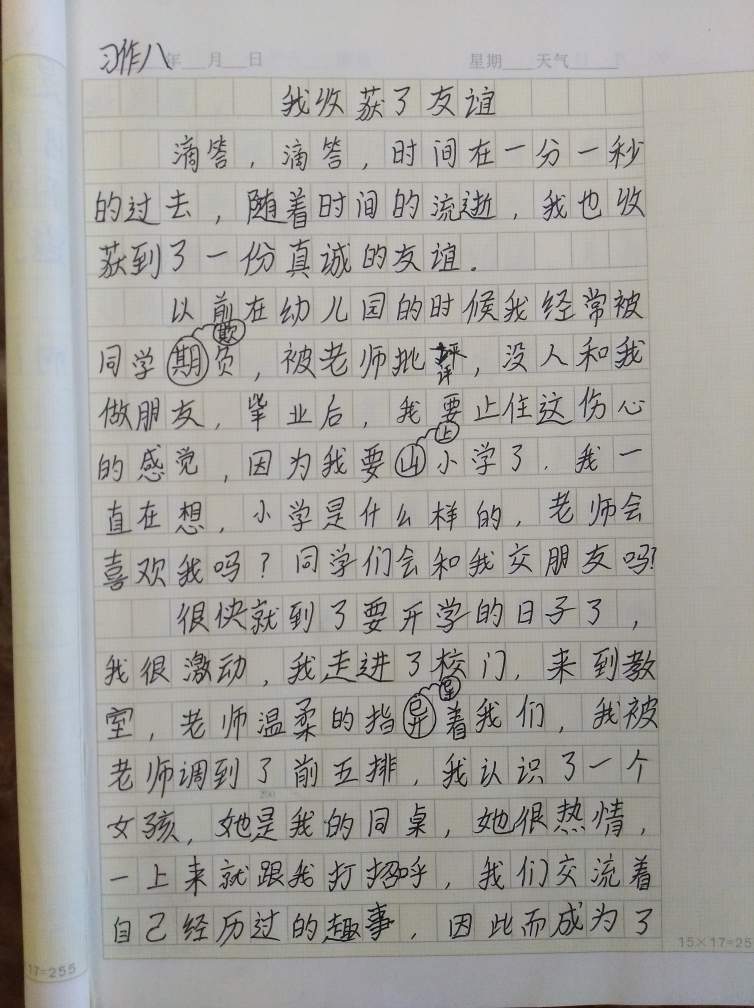 习作八 年 月 日 星期 天气
我收获了友谊
滴答，滴答，时间在一分一秒
的过去，随着时间的流逝，我也收
获到了一份真诚的友谊.
以前在幼儿园的时候我经常被
欺
同学期负，被老师批评，没人和我
做朋友，毕业后，我要止住这伤心
上
的感觉，因为我要山小学了.我一
直在想，小学是什么样的，老师会
喜欢我吗？同学们会和我交朋友吗?
很快就到了要开学的日子了，
我很激动，我走进了校门，来到教
导
室，老师温柔的指异着我们，我被
老师调到了前五排，我认识了一个
女孩，她是我的同桌，她很热情，
一上来就跟我打招呼，我们交流着
自己经历过的趣事，因此而成为了
15×17=25
17=255